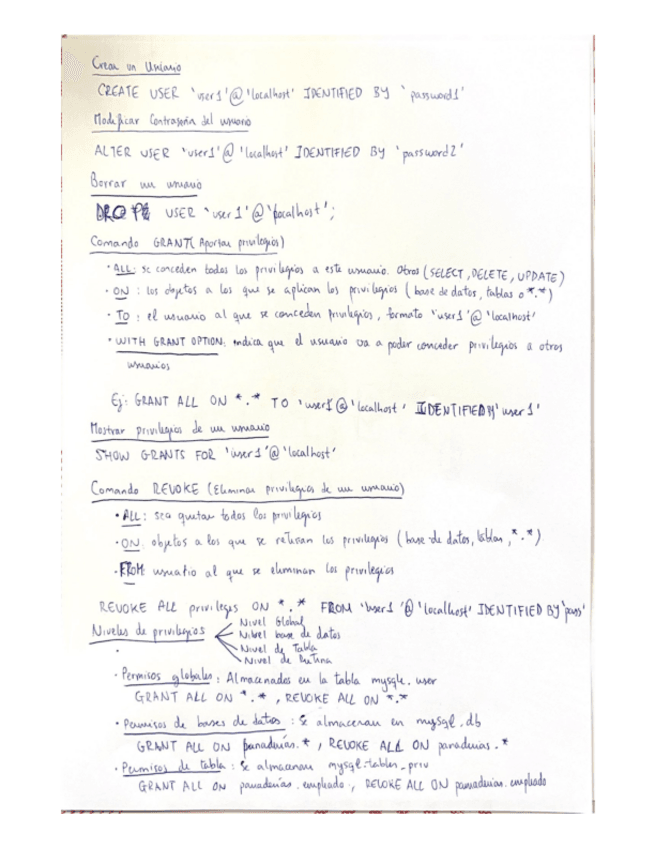 Crear un Usuario
CREATE USER 'user1'@'localhost' IDENTIFIED BY 'password1'
Modificar Contraseña del usuario
ALTER USER 'user1'@'localhost' IDENTIFIED BY 'password2'
Borrar un usuario
DROP USER 'user1'@'localhost';
Comando GRANT (Aportar privilegios)
· ALL: se conceden todos los privilegios a este usuario. Otros (SELECT, DELETE, UPDATE)
· ON : los objetos a los que se aplican los privilegios (base de datos, tablas o *.*)
· TO : el usuario al que se conceden privilegios, formato 'user1'@'localhost'
· WITH GRANT OPTION: indica que el usuario va a poder conceder privilegios a otros
usuarios
Ej: GRANT ALL ON *.* TO 'user1@'localhost' IDENTIFIED BY 'user1'
Mostrar privilegios de un usuario
SHOW GRANTS FOR 'user1'@'localhost'
Comando REVOKE (Eliminar privilegios de un usuario)
· ALL: sea quitar todos los privilegios
· ON: objetos a los que se retiran los privilegios (base de datos, tablas, *.*)
· FROM usuario al que se eliminan los privilegios
REVOKE ALL privileges ON *.* FROM 'user1'@'localhost' IDENTIFIED BY 'pass'
Niveles de privilegios
Nivel Global
Nivel base de datos
Nivel de Tabla
Nivel de Rutina
· Permisos globales: Almacenados en la tabla mysql.user
GRANT ALL ON *.* , REVOKE ALL ON *.*
· Permisos de bases de datos : Se almacenan en mysql.db
GRANT ALL ON panaderias.* , REVOKE ALL ON panaderias.*
· Permisos de tabla : Se almacenan mysql.tables_priv
GRANT ALL ON panaderías.empleado , REVOKE ALL ON panaderias.empleado